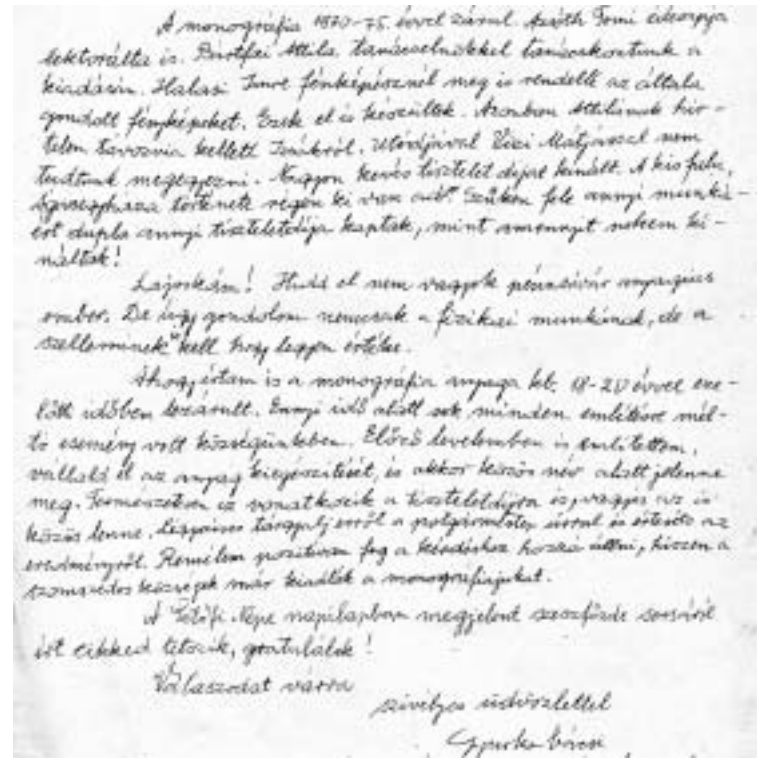 A monográfia 1970-75. évvel zárul. Asóth Tomi édesapja
lektorálta is. Pártfai Attila tanácselnökkel tanácskoztunk a
kiadásán. Halasi Imre fényképésznél meg is rendelte az általa
gondolt fényképeket. Ezek el is készültek. Azonban Attilának hir-
telen távoznia kellett Izsákról. Utódjával Vízi Mátyással nem
tudtunk megegyezni. Nagyon kevés tiszteletdijat kinált. A kis falu,
története régen ki van adva. Szűken fele annyi munká-
ért dupla annyi tiszteletdíjat kaptak, mint amennyit nekem ki-
náltak!
Lajoskám! Hidd el nem vagyok pénzsóvár anyagias
ember. De úgy gondolom nemcsak a fizikai munkának, de a
szelleminek is kell hogy legyen értéke.
Ahogy írtam is a monográfia anyaga kb. 18-20 évvel eze-
lőtt időben lezárult. Ennyi idő alatt sok minden emlitésre mél-
tó esemény volt községünkben. Előző levelemben is emlitettem,
vállald el az anyag kiegészitését, és akkor közös név alatt jelenne
meg. Természetesen ez vonatkozik a tiszteletdijra is, vagyis az is
közös lenne. Légy szíves tárgyalj erről a polgármester úrral és értesíts az
eredményről. Remélem pozitivan fog a kérdéshez hozzá állni, hiszen a
szomszédos községek már kiadták a monográfiájukat.
A Petőfi Népe napilapban megjelent szeszfőzde sorsáról
írt cikked tetszik, gratulálok!
Válaszodat várva
szivélyes üdvözlettel